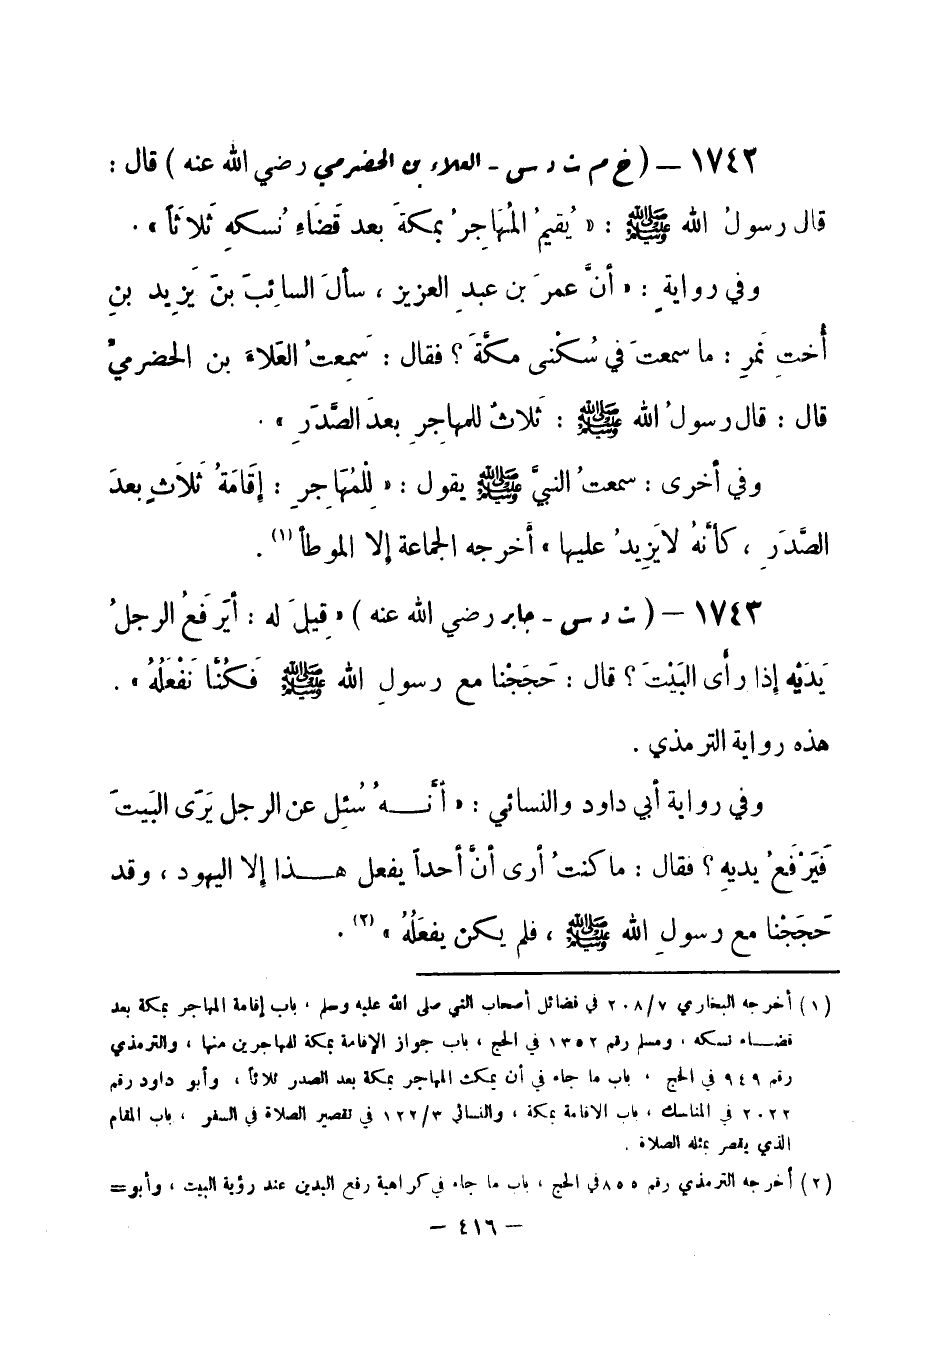 ١٧٤٢ – ( خ م ت د س - العلاء بن الحضرمي رضي الله عنه ) قال :
قال رسولُ الله ﷺ : « يُقيمُ المُهَاجِرُ بمكةَ بعد قَضَاءِ نُسكهِ ثَلاثَاً » .
وفي روايةٍ : « أنَّ عمرَ بن عبدِ العزيز ، سألَ السائِبَ بنَ يَزيد بنِ
أُختِ نَمِرٍ : ما سمعتَ في سُكْنى مكَّةَ ؟ فقال : سَمِعتُ العَلاءَ بن الحضرميَّ
قال : قال رسولُ الله ﷺ : ثَلاثٌ للمهاجرِ بعدَ الصَّدَرِ » .
وفي أخرى : سمعتُ النبيَّ ﷺ يقول : « لِلْمُهَاجِرِ : إقَامَةُ ثَلاَثٍ بعدَ
الصَّدَرِ ، كأنَّهُ لايَزِيدُ عليها » أخرجه الجماعة إلا الموطأ (١) .
١٧٤٣ – ( ت د س - جابر رضي الله عنه ) « قِيلَ له : أيَرفَعُ الرجلُ
يَدَيْهِ إذا رأى البَيْتَ ؟ قال : حَجَجْنا مع رسولِ الله ﷺ فَكُنَّا نَفْعَلُهُ » .
هذه رواية الترمذي .
وفي رواية أبي داود والنسائي : « أنَّـــهُ سُئِل عن الرجل يَرَى البَيتَ
فَيَرْفَعُ يديهِ ؟ فقال : ما كنتُ أرى أنَّ أحداً يفعل هـــذا إلا اليهود ، وقد
حَجَجْنا مع رسولِ الله ﷺ ، فلم يكن يفعَلُهُ » (٢) .
(١) أخرجه البخاري ٢٠٨/٧ في فضائل أصحاب النبي صلى الله عليه وسلم ، باب إقامة المهاجر بمكة بعد
قضـــاء نسكه ، ومسلم رقم ١٣٥٢ في الحج ، باب جواز الإقامة بمكة للمهاجرين منها ، والترمذي
رقم ٩٤٩ في الحج ، باب ما جاء في أن يمكث المهاجر بمكة بعد الصدر ثلاثاً ، وأبو داود رقم
٢٠٢٢ في المناسك ، باب الاقامة بمكة ، والنسائي ١٢٢/٣ في تقصير الصلاة في السفر ، باب المقام
الذي يقصر بمثله الصلاة .
(٢) أخرجه الترمذي رقم ٨٥٥ في الحج ، باب ما جاء في كراهية رفع اليدين عند رؤية البيت ، وأبو=
– ٤١٦ –